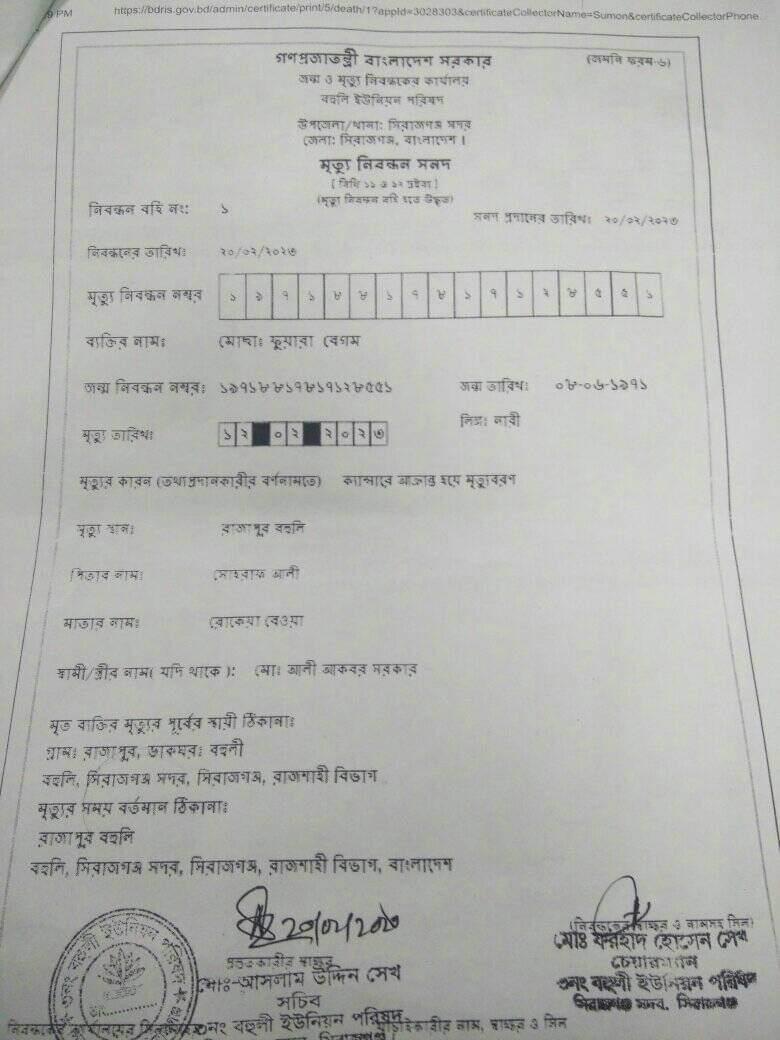 9 PM https://bdris.gov.bd/admin/certificate/print/5/death/1?appId=3028303&certificateCollectorName=Sumon&certificateCollectorPhone
গণপ্রজাতন্ত্রী বাংলাদেশ সরকার (জমনি ফরম-৬)
জন্ম ও মৃত্যু নিবন্ধকের কার্যালয়
বহুলি ইউনিয়ন পরিষদ
উপজেলা/থানা: সিরাজগঞ্জ সদর
জেলা: সিরাজগঞ্জ, বাংলাদেশ।
মৃত্যু নিবন্ধন সনদ
[ বিধি ১১ ও ১২ দ্রষ্টব্য ]
(মৃত্যু নিবন্ধন বহি হতে উদ্ধৃত)
নিবন্ধন বহি নং: ১ সনদ প্রদানের তারিখ: ২০/০২/২০২৩
নিবন্ধনের তারিখঃ ২০/০২/২০২৩
মৃত্যু নিবন্ধন নম্বর ১৯৭১৮৮১৭৮১৭১২৮৫৫১
ব্যক্তির নাম: মোছাঃ ফুয়ারা বেগম
জন্ম নিবন্ধন নম্বর: ১৯৭১৮৮১৭৮১৭১২৮৫৫১ জন্ম তারিখ: ০৮-০৬-১৯৭১
মৃত্যু তারিখ: ১২ ০২ ২০২৩ লিঙ্গ: নারী
মৃত্যুর কারন (তথ্যপ্রদানকারীর বর্ণনামতে) ক্যান্সারে আক্রান্ত হয়ে মৃত্যুবরণ
মৃত্যু স্থান: রাজাপুর বহুলি
পিতার নাম: সোহরাফ আলী
মাতার নাম: রোকেয়া বেওয়া
স্বামী/স্ত্রীর নাম( যদি থাকে ): মোঃ আলী আকবর সরকার
মৃত ব্যক্তির মৃত্যুর পূর্বের স্থায়ী ঠিকানাঃ
গ্রাম: রাজাপুর, ডাকঘর: বহুলী
বহুলি, সিরাজগঞ্জ সদর, সিরাজগঞ্জ, রাজশাহী বিভাগ
মৃত্যুর সময় বর্তমান ঠিকানাঃ
রাজাপুর বহুলি
বহুলি, সিরাজগঞ্জ সদর, সিরাজগঞ্জ, রাজশাহী বিভাগ, বাংলাদেশ
২০/০২/২০২৩
(নিবন্ধকের স্বাক্ষর ও নামসহ সিল)
প্রস্তুতকারীর স্বাক্ষর মোঃ ফরহাদ হোসেন সেখ
মোঃ-আসলাম উদ্দিন সেখ চেয়ারম্যান
সচিব ৩নং বহুলী ইউনিয়ন পরিষদ
৩নং বহুলী ইউনিয়ন পরিষদ সিরাজগঞ্জ সদর, সিরাজগঞ্জ
নিবন্ধকের কার্যালয়ের নাম, স্বাক্ষর ও সিল
৩নং বহুলী ইউনিয়ন পরিষদ